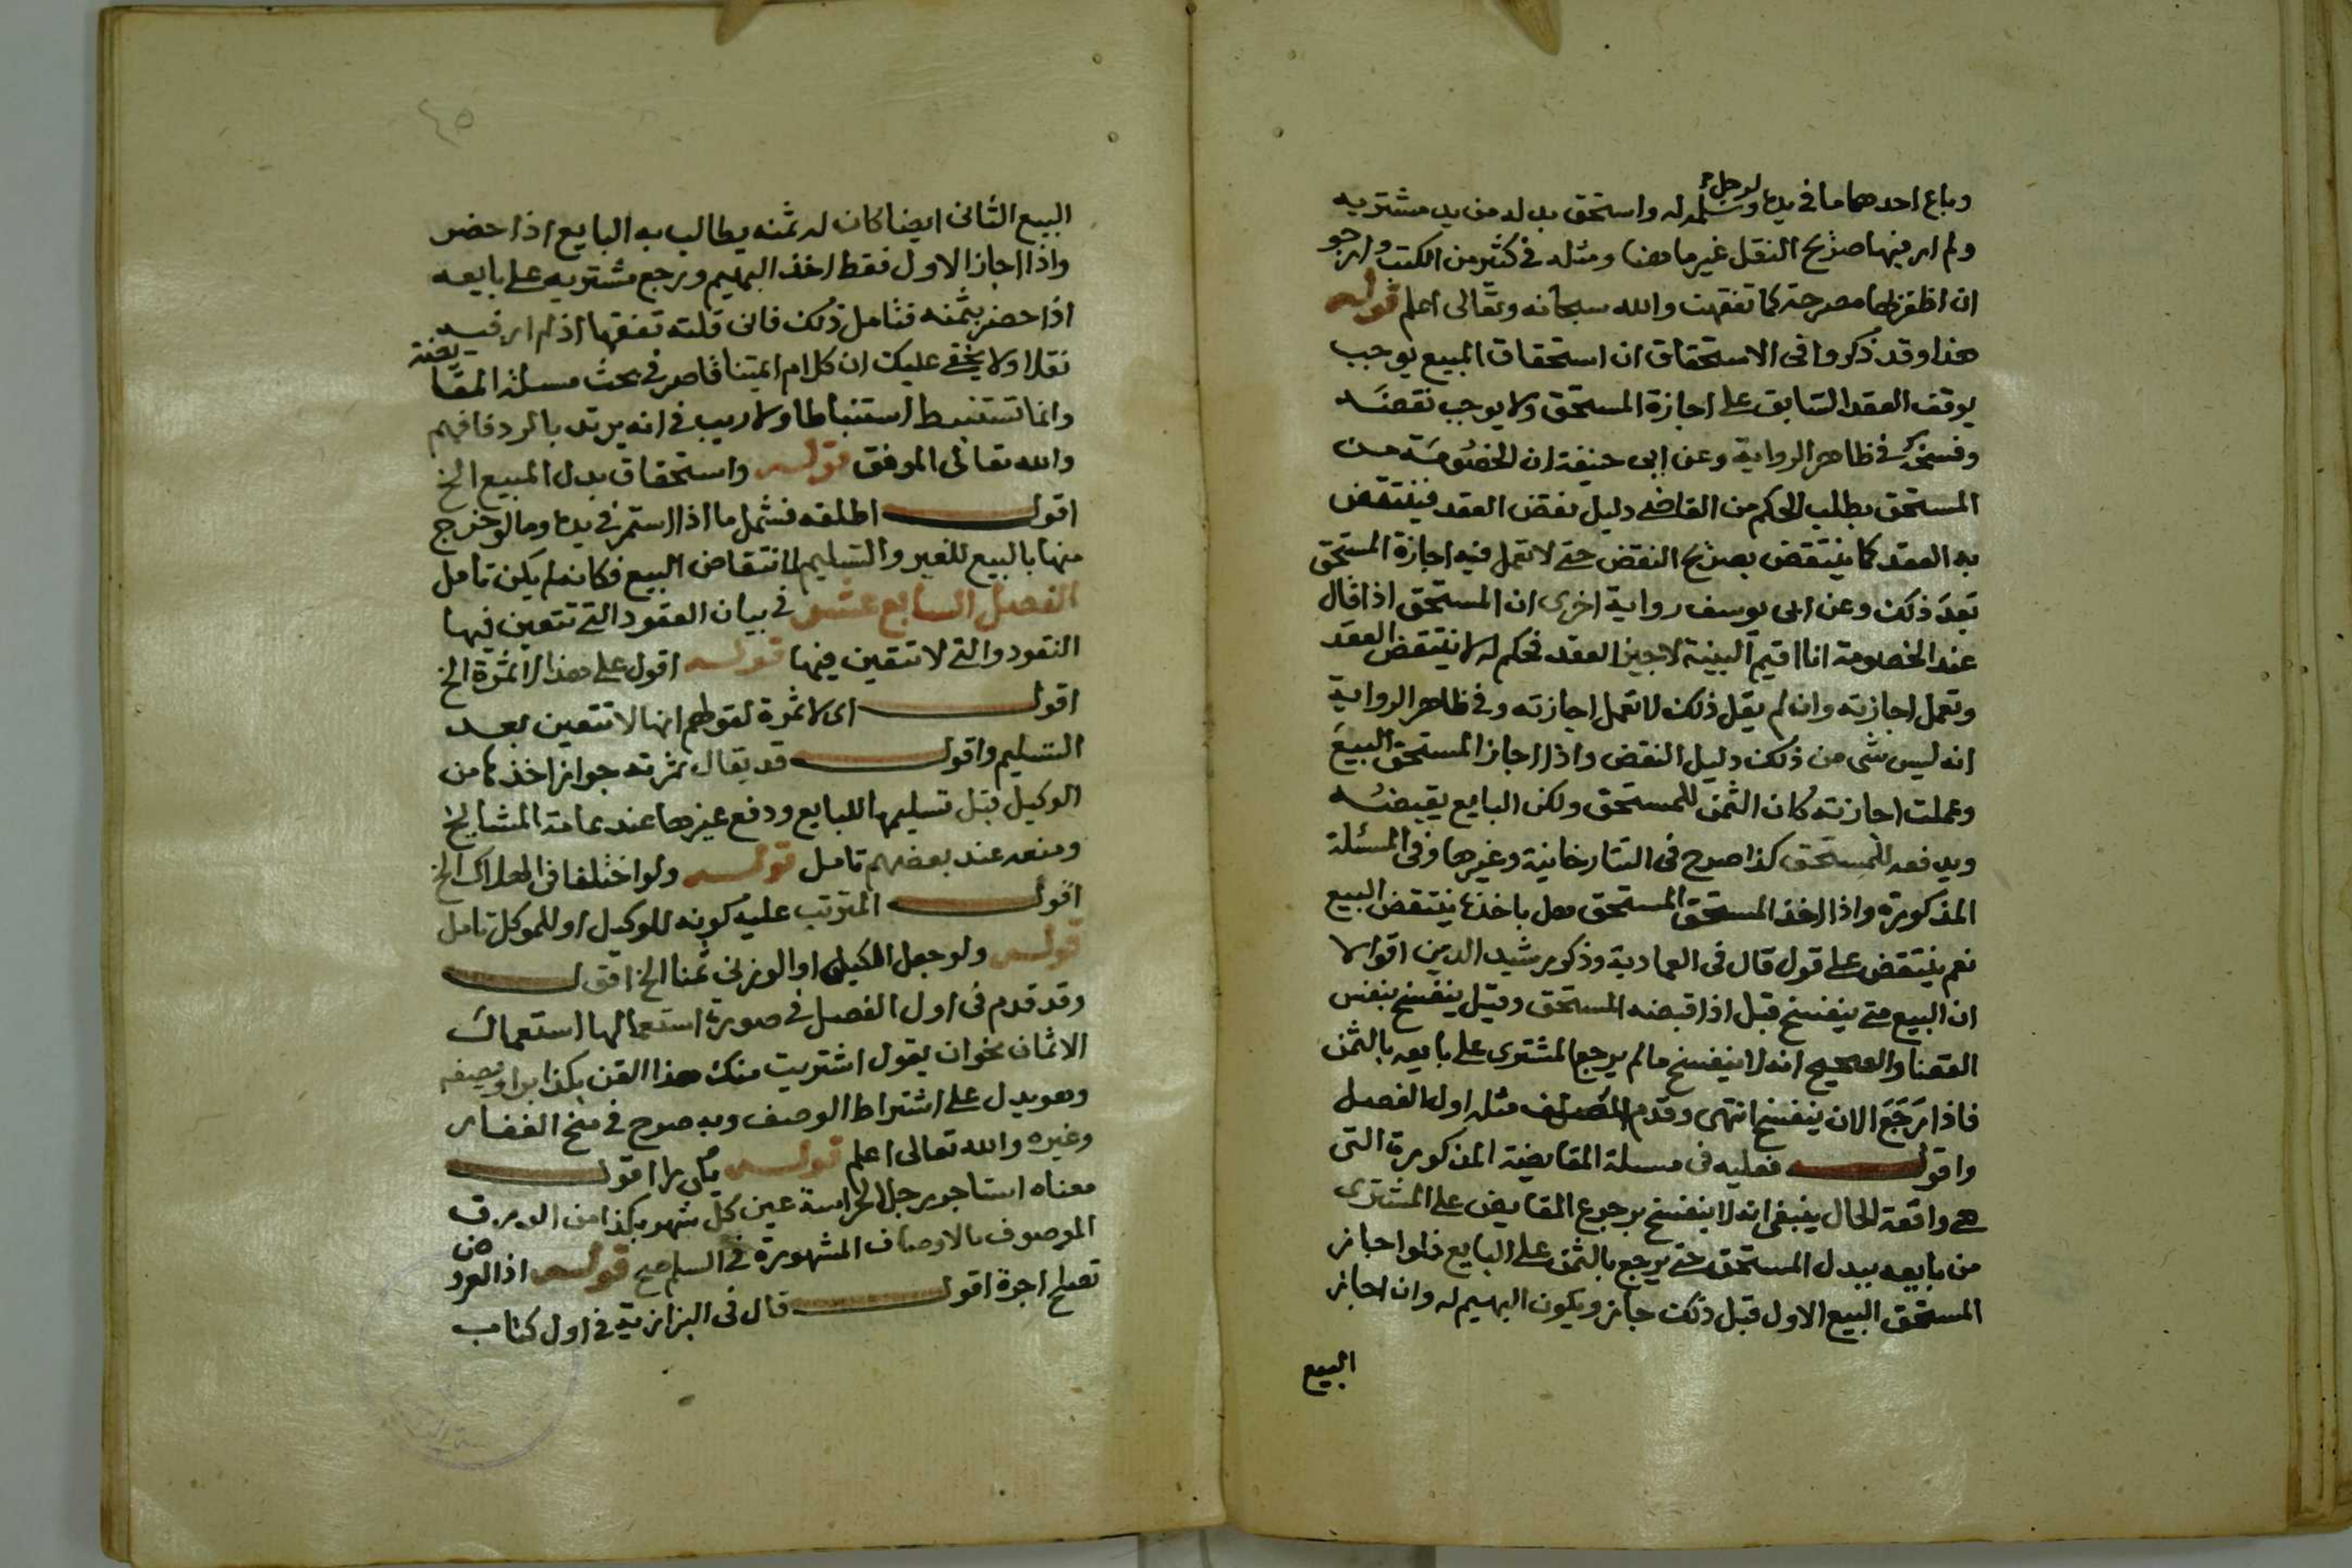 وباع احدهما ما في يده لرجل وسلمه له واستحق بدله من يد مشتريه
ولم ار فيها صريح النقل غير ما هنا ومثله في كثير من الكتب وارجو
ان اظفر بها مصرحة كما تفقهت والله سبحانه وتعالى اعلم قوله
هذا وقد ذكروا في الاستحقاق ان استحقاق المبيع يوجب
يوقف العقد السابق على اجازة المستحق ولا يوجب نقضه
وفسخه في ظاهر الرواية وعن ابي حنيفة ان الخصومة من
المستحق بطلب الحكم من القاضي دليل نقض العقد فينتقض
به العقد كما ينتقض بصريح النقض حتى لا تعمل فيه اجازة المستحق
بعد ذلك وعن ابي يوسف رواية اخرى ان المستحق اذا قال
عند الخصومة انا اقيم البينة لاجيز العقد فحكم له لا ينتقض العقد
وتعمل اجازته وان لم يقل ذلك لا تعمل اجازته وفي ظاهر الرواية
انه ليس شي من ذلك دليل النقض واذا اجاز المستحق البيع
وعملت اجازته كان الثمن للمستحق ولكن البايع يقبضه
ويدفعه للمستحق كذا صرح في التتارخانية وغيرها وفي المسئلة
المذكورة واذا اخذ المستحق المستحق هل باخذه ينتقض البيع
نعم ينتقض على قول قال في العمادية وذكر رشيد الدين اقوالا
ان البيع متى ينفسخ قبل اذا قبضه المستحق وقيل ينفسخ بنفس
القضا والصحيح انه لا ينفسخ ما لم يرجع المشترى على بايعه بالثمن
فاذا رجع الان ينفسخ انتهى وقدم المصنف مثله اول الفصل
واقول فعليه في مسئلة المقايضة المذكورة التي
هي واقعة الحال ينبغي انه لا ينفسخ برجوع المقايض على المشترى
من بايعه ببدل المستحق حتى يرجع بالثمن على البايع فلو اجاز
المستحق البيع الاول قبل ذلك جاز ويكون البهيم له وان اجاز
البيع
٤٥
البيع الثاني ايضا كان له ثمنه يطالب به البايع اذا حضر
واذا اجاز الاول فقط اخذ البهيم ورجع مشتريه على بايعه
اذا حضر بثمنه فتامل ذلك فاني قلته تفقها اذ لم ار فيه
نقلا ولا يخفى عليك ان كلام ايمتنا قاصر في بحث مسئلة المقايضة
وانما تستنبط استنباطا ولا ريب في انه يرتد بالرد فافهم
والله تعالى الموفق قوله واستحقاق بدل المبيع الخ
اقول اطلقه فشمل ما اذا استمر في يده وما لو خرج
منها بالبيع للغير والتسليم لانتقاض البيع فكانه لم يكن تامل
الفصل السابع عشر في بيان العقود التي تتعين فيها
النقود والتي لا تتعين فيها قوله اقول على هذا لا ثمرة الخ
اقول اى لا ثمرة لقولهم انها لا تتعين بعد
التسليم واقول قد يقال ثمرته جواز اخذها من
الوكيل قبل تسليمها للبايع ودفع غيرها عند عامة المشايخ
ومنعه عند بعضهم تامل قوله ولو اختلفا في الهلاك الخ
اقول المترتب عليه كونه للوكيل او للموكل تامل
قوله ولو جعل المكيلي او الوزني ثمنا الخ اقول
وقد قدم في اول الفصل في صورة استعمالها استعمال
الاثمان نحو ان يقول اشتريت منك هذا القن بكذا برا ويصفه
وهو يدل على اشتراط الوصف وبه صرح في منح الغفار
وغيره والله تعالى اعلم قوله اقول
معناه استاجر رجل الحراسة عين كل شهر بكذا من الورق
الموصوف بالاوصاف المشهورة في السلم صح قوله اذ العروض
تصلح اجرة اقول قال في البزازية في اول كتاب